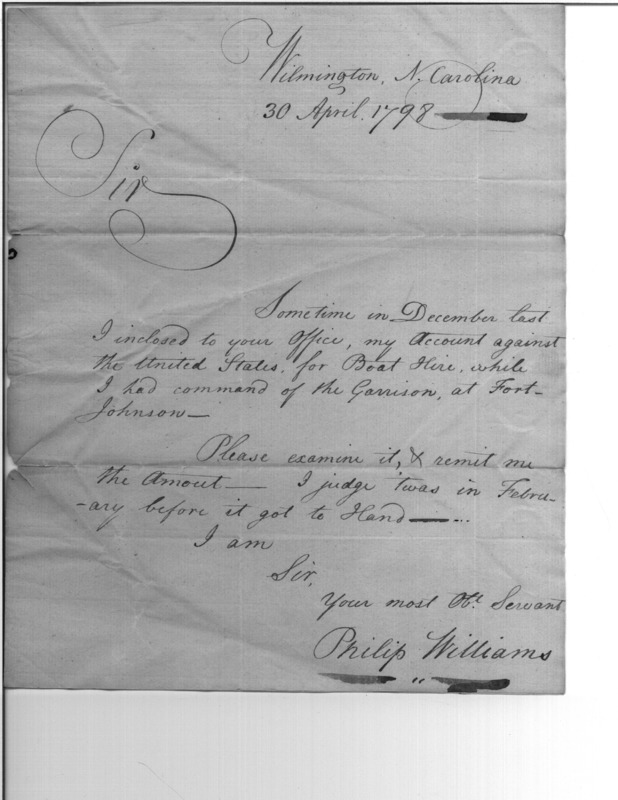 Wilmington, N. Carolina
30 April. 1798
Sir
Sometime in December last
I inclosed to your Office, my Account against
the United States, for Boat Hire, while
I had command of the Garrison, at Fort-
Johnson—
Please examine it, & remit me
the Amout— I judge 'twas in Febru-
-ary before it got to Hand—...
I am
Sir,
Your most Obt. Servant
Philip Williams